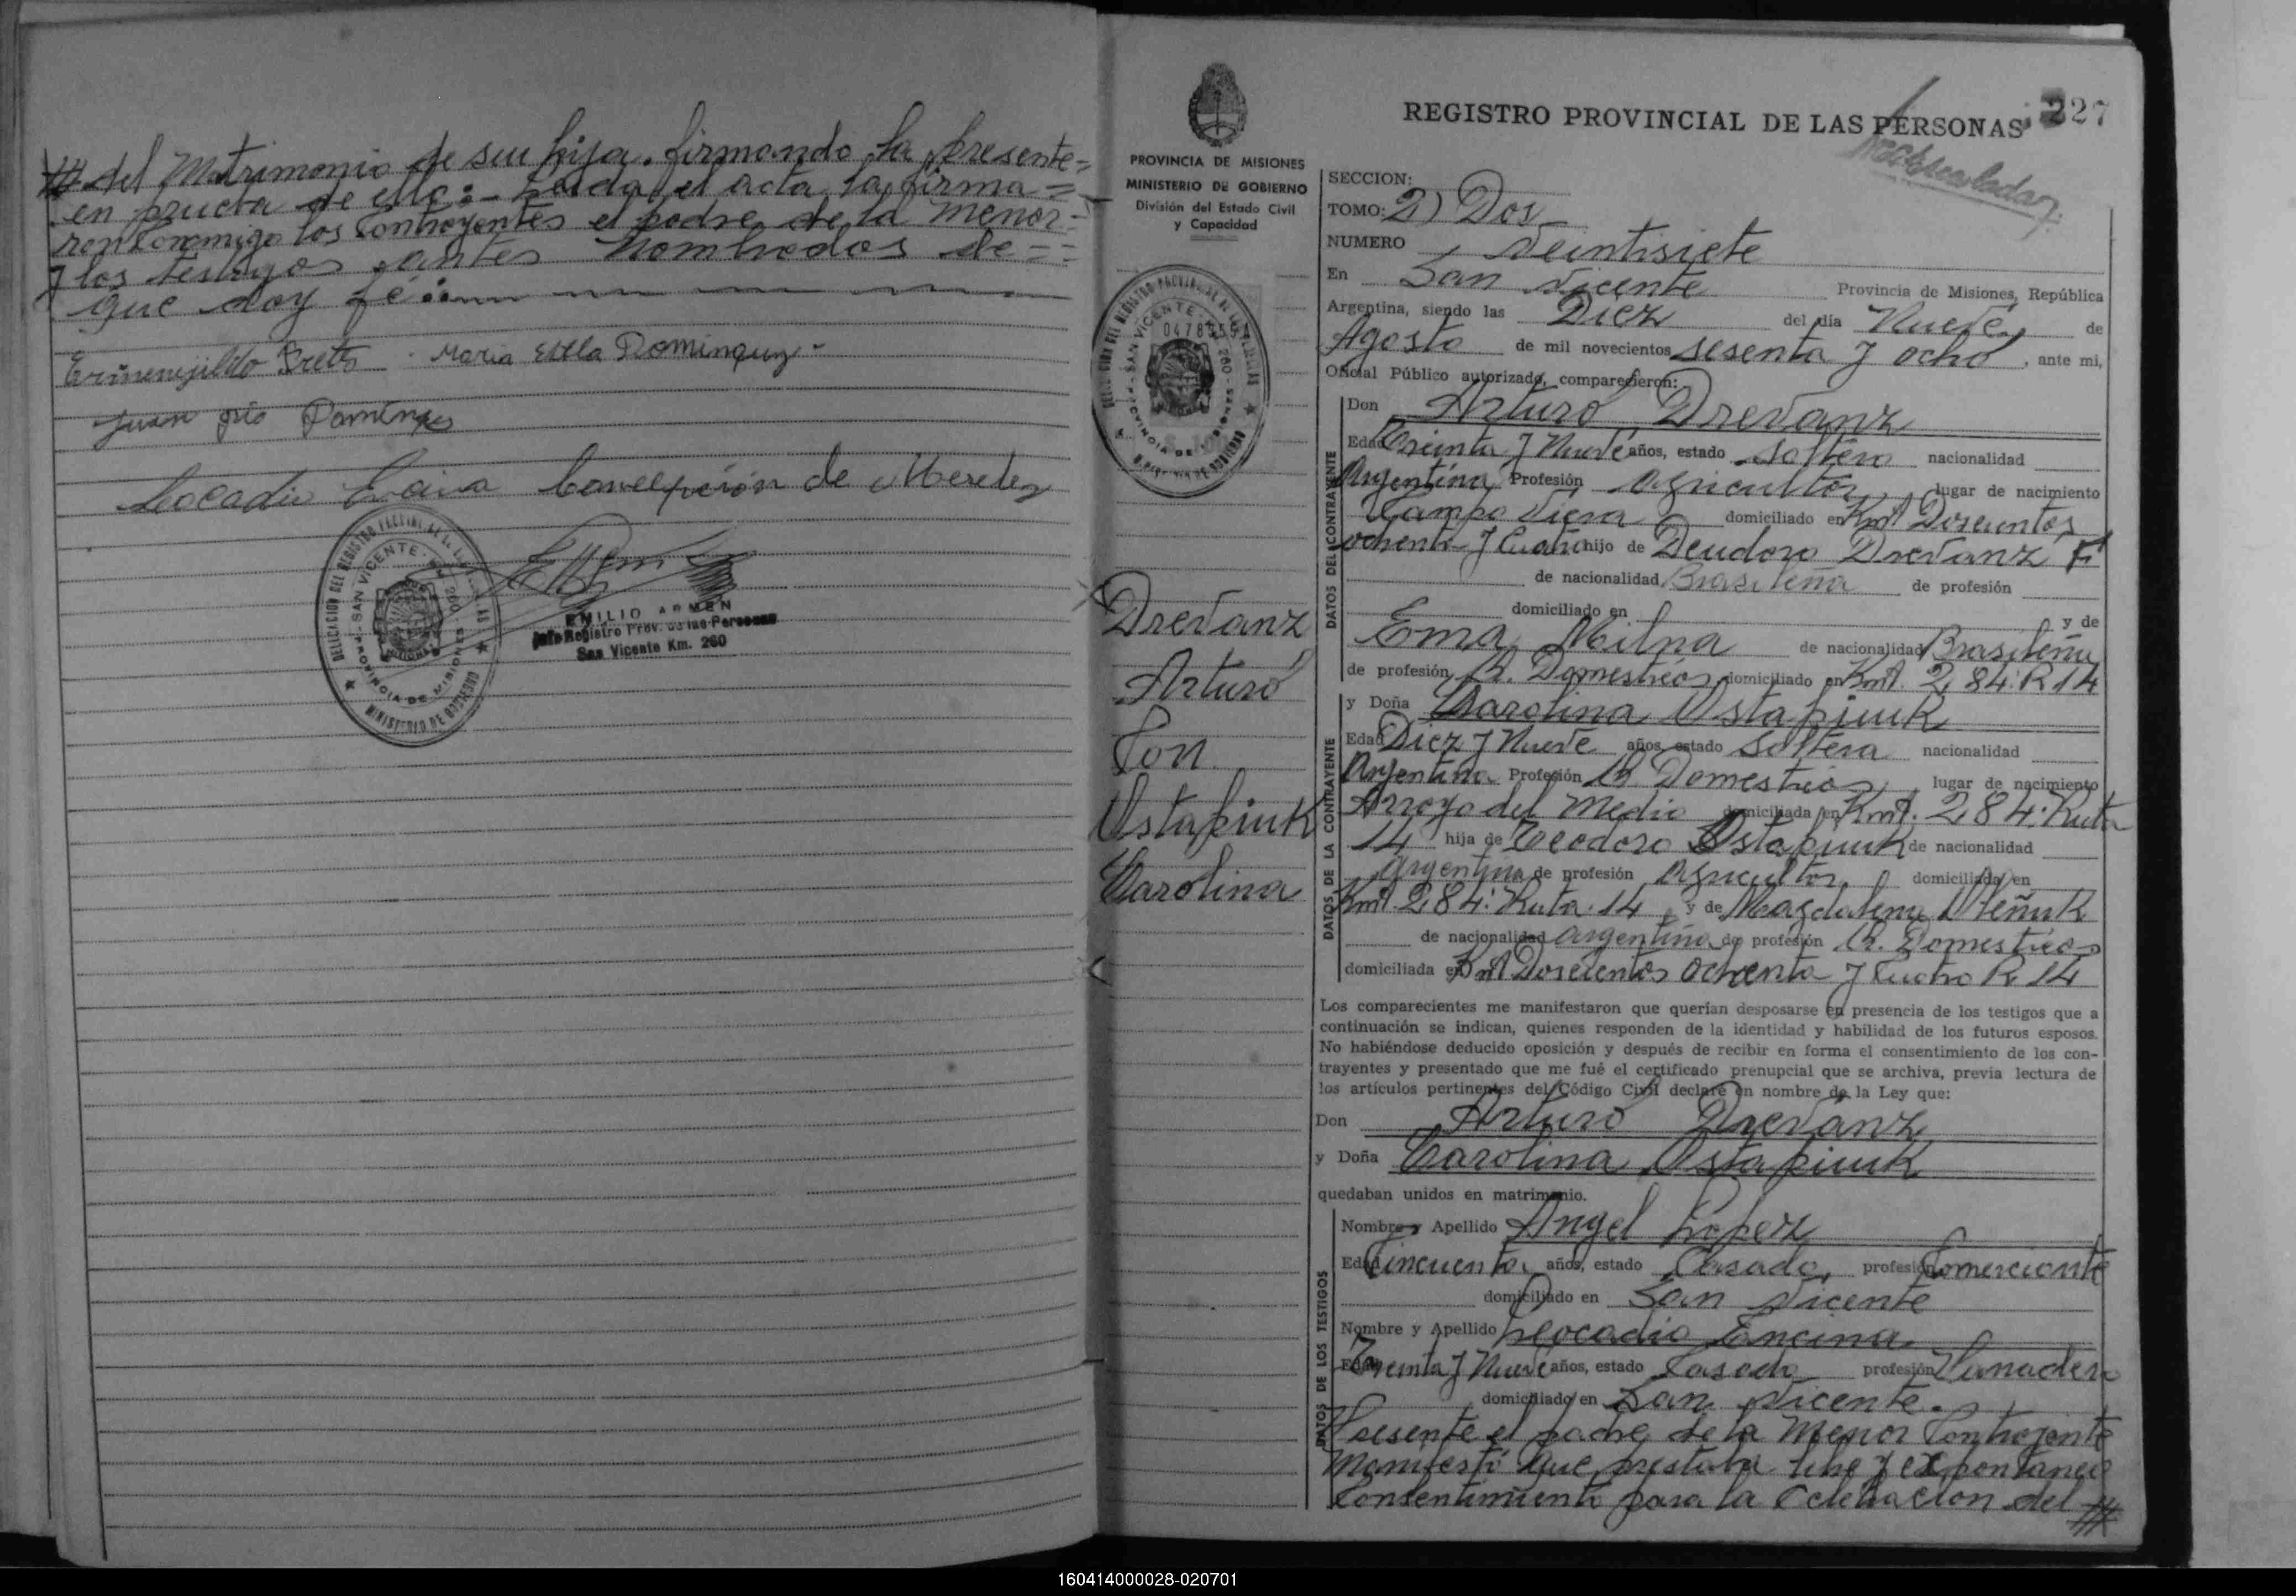 /// del Matrimonio de su hija. firmando la presente=
en prueba de ello:- Leida el acta, la firma=
ron Conmigo los Contrayentes el padre de la menor-
y los testigos antes nombrados de==
que doy fé:
Maria Estela Dominguez
Concepción de Meredez
DELEGACION DEL REGISTRO PROVINCIAL DE LAS PERSONAS
SAN VICENTE - KM 260
PROVINCIA DE MISIONES
MINISTERIO DE GOBIERNO
EMILIO ARMEN
Jefe Registro Prov. de las Personas
San Vicente Km. 260
REGISTRO PROVINCIAL DE LAS PERSONAS
227
PROVINCIA DE MISIONES
MINISTERIO DE GOBIERNO
División del Estado Civil
y Capacidad
DELEGACION DEL REGISTRO PROVINCIAL DE LAS PERSONAS
SAN VICENTE - KM 260
PROVINCIA DE
Drevanz
Arturo
Con
Ostapiuk
Carolina
SECCION:
TOMO: 2) Dos
NUMERO Veintisiete
En San Vicente Provincia de Misiones, República
Argentina, siendo las Diez del día Nueve de
Agosto de mil novecientos sesenta y ocho, ante mi,
Oficial Público autorizado, comparecieron:
DATOS DEL CONTRAYENTE
Don Arturo Drevanz
Edad Treinta y Nueve años, estado Soltero nacionalidad
Argentina Profesión Agricultor lugar de nacimiento
Campo Viera domiciliado en Kmt Doscientos
ochenta y Cuatro hijo de Deudoro Drevanz F
de nacionalidad Brasileña de profesión
domiciliado en y de
Ema Milna de nacionalidad Brasileña
de profesión Q. Domesticos domiciliado en Kmt. 284. R 14
DATOS DE LA CONTRAYENTE
y Doña Carolina Ostapiuk
Edad Diez y Nueve años, estado Soltera nacionalidad
Argentina Profesión Q. Domesticos lugar de nacimiento
Arroyo del Medio domiciliada en Kmt. 284. Ruta
14 hija de Teodoro Ostapiuk de nacionalidad
Argentina de profesión Agricultor domiciliada en
Kmt. 284. Ruta. 14 y de Magdalena
de nacionalidad Argentina de profesión Q. Domesticos
domiciliada en Kmt Doscientos ochenta y Cuatro R 14
Los comparecientes me manifestaron que querían desposarse en presencia de los testigos que a
continuación se indican, quienes responden de la identidad y habilidad de los futuros esposos.
No habiéndose deducido oposición y después de recibir en forma el consentimiento de los con-
trayentes y presentado que me fué el certificado prenupcial que se archiva, previa lectura de
los artículos pertinentes del Código Civil declaré en nombre de la Ley que:
Don Arturo Drevanz
y Doña Carolina Ostapiuk
quedaban unidos en matrimonio.
DATOS DE LOS TESTIGOS
Nombre y Apellido Angel Lopez
Edad Cincuenta años, estado Casado, profesión Comerciante
domiciliado en San Vicente
Nombre y Apellido Leocadio Encina
Edad Treinta y Nueve años, estado Casado profesión Panadero
domiciliado en San Vicente.
Presente el padre de la Menor Contrayente
Manifestó que prestaba libre y expontaneo
Consentimiento para la Celebracion del ///
160414000028-020701